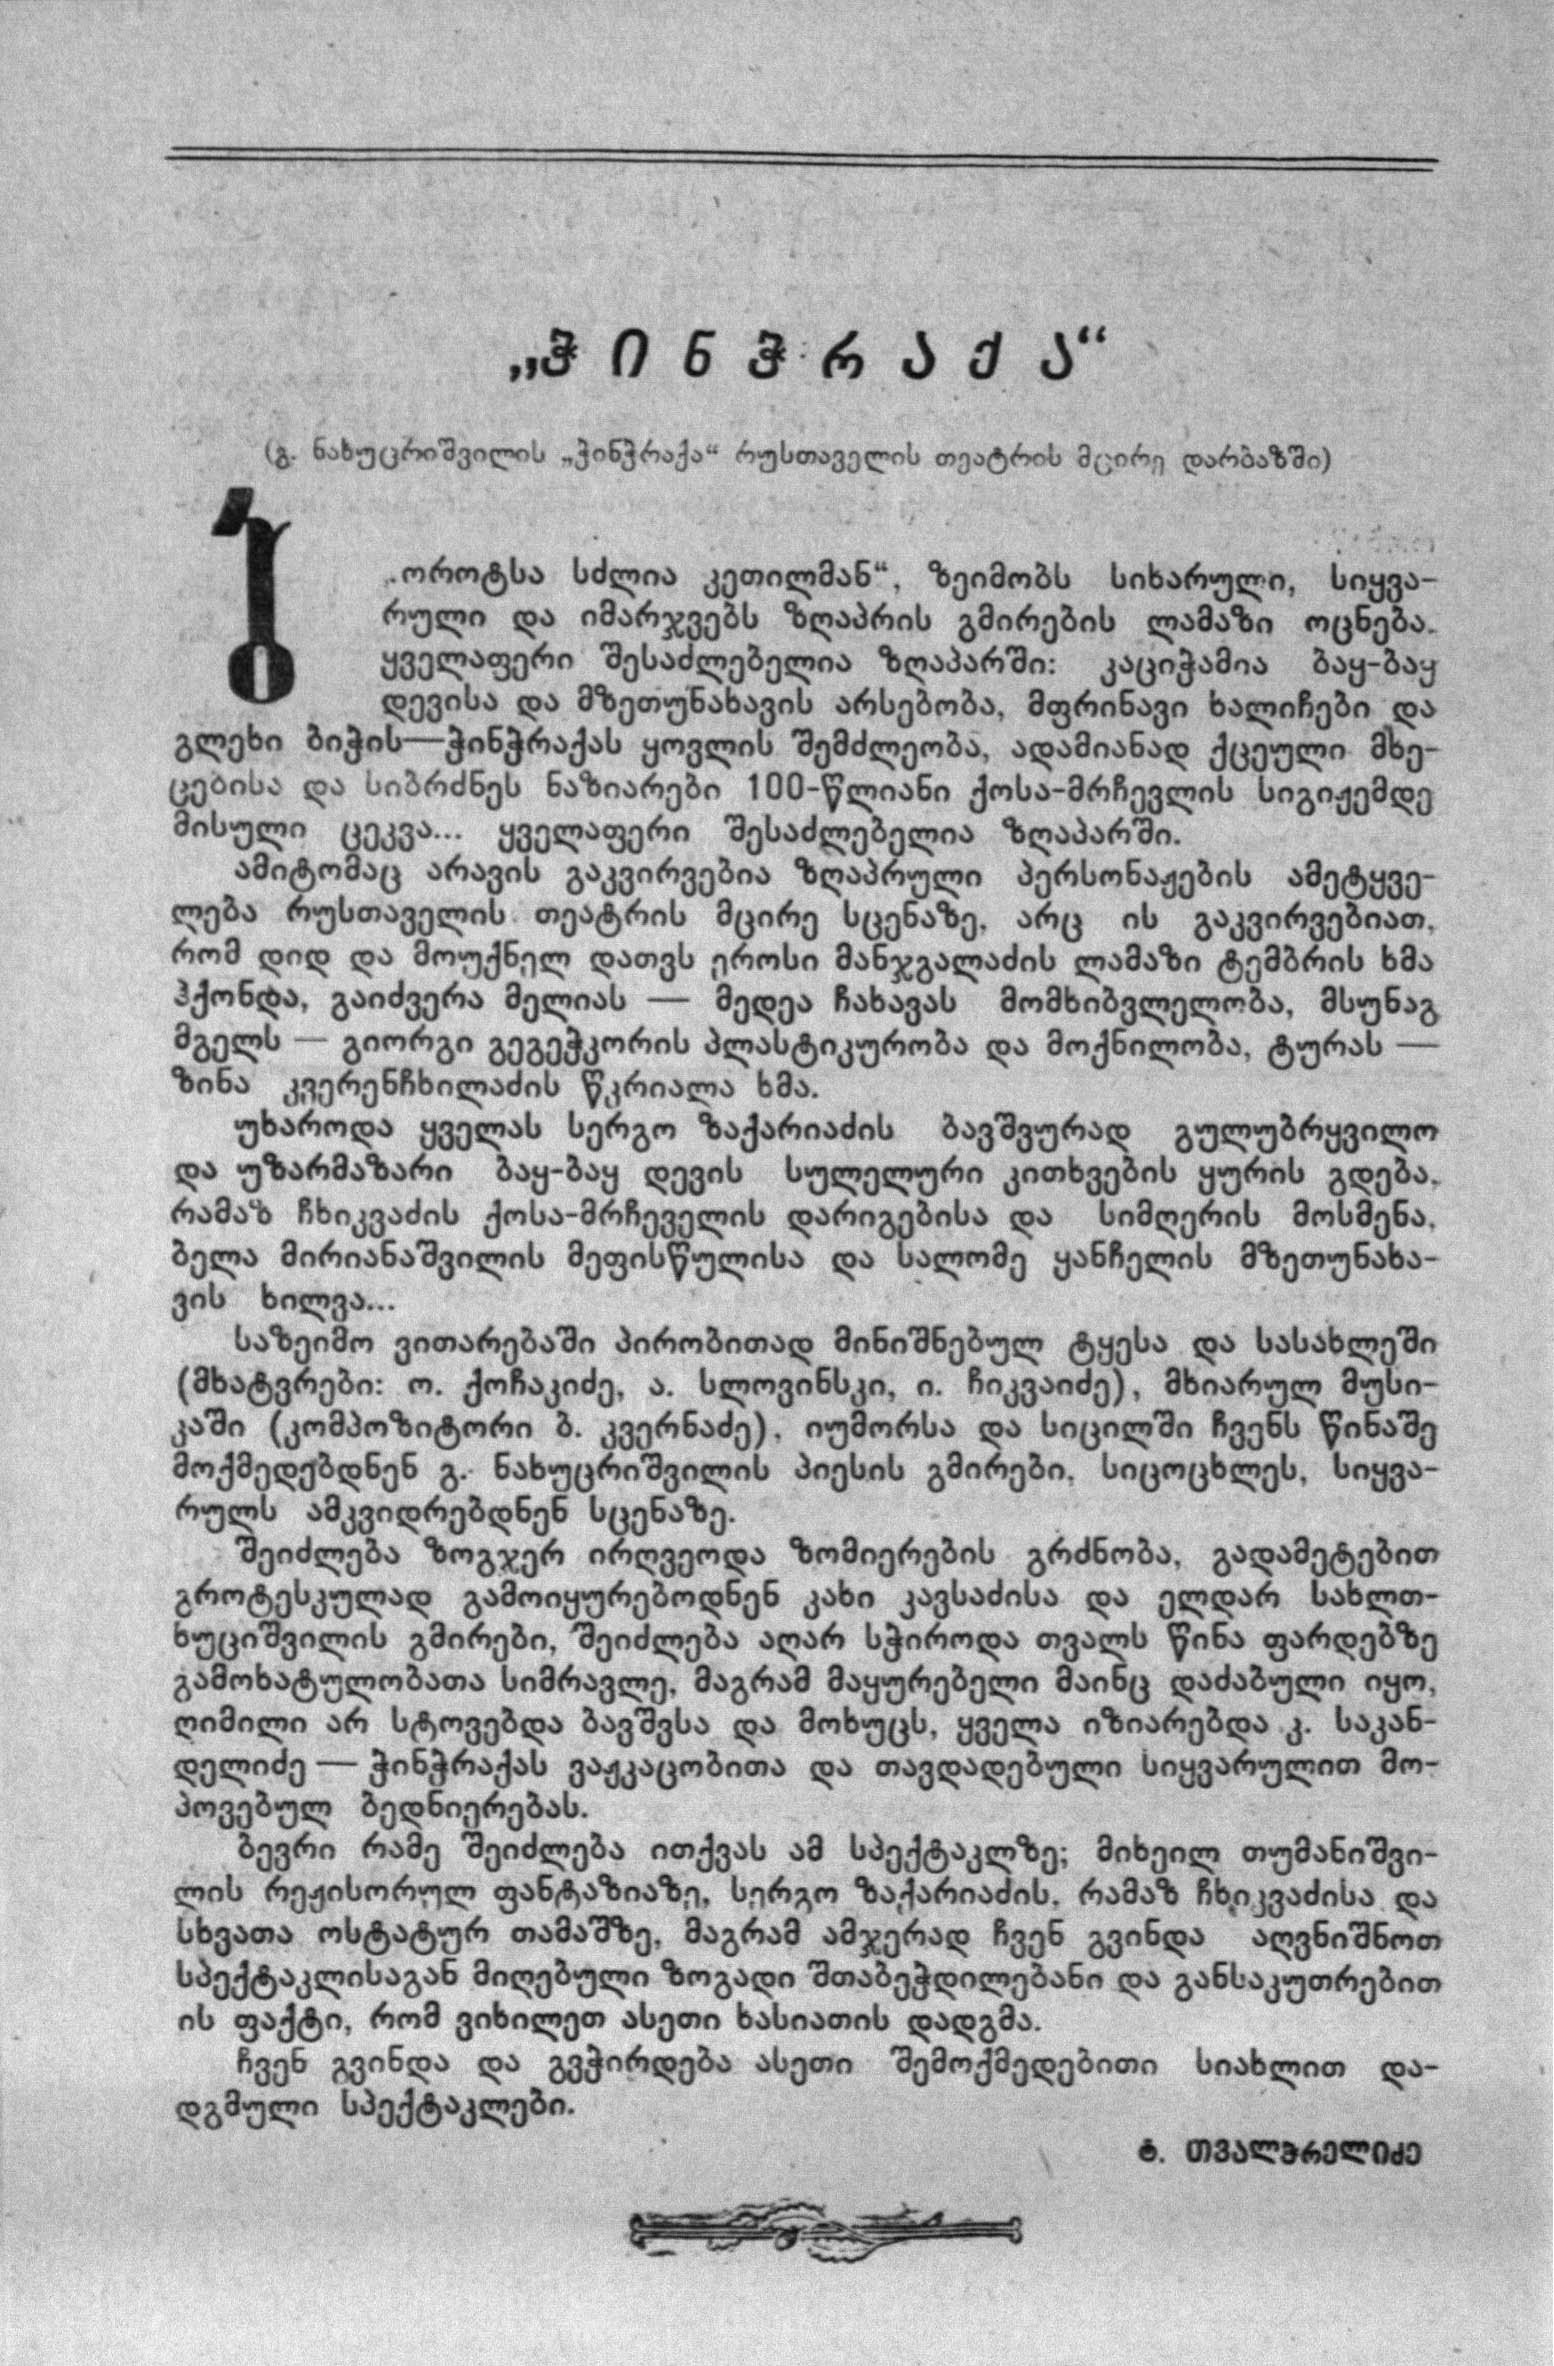 „ჭინჭრაქა“
(გ. ნახუცრიშვილის „ჭინჭრაქა“ რუსთაველის თეატრის მცირე დარბაზში)
ბოროტსა სძლია კეთილმან“, ზეიმობს სიხარული, სიყვა-
რული და იმარჯვებს ზღაპრის გმირების ლამაზი ოცნება.
ყველაფერი შესაძლებელია ზღაპარში: კაციჭამია ბაყ-ბაყ
დევისა და მზეთუნახავის არსებობა, მფრინავი ხალიჩები და
გლეხი ბიჭის—ჭინჭრაქას ყოვლის შემძლეობა, ადამიანად ქცეული მხე-
ცებისა და სიბრძნეს ნაზიარები 100-წლიანი ქოსა-მრჩევლის სიგიჟემდე
მისული ცეკვა... ყველაფერი შესაძლებელია ზღაპარში.
ამიტომაც არავის გაკვირვებია ზღაპრული პერსონაჟების ამეტყვე-
ლება რუსთაველის თეატრის მცირე სცენაზე, არც ის გაკვირვებიათ,
რომ დიდ და მოუქნელ დათვს ეროსი მანჯგალაძის ლამაზი ტემბრის ხმა
ჰქონდა, გაიძვერა მელიას — მედეა ჩახავას მომხიბვლელობა, მსუნაგ
მგელს — გიორგი გეგეჭკორის პლასტიკურობა და მოქნილობა, ტურას —
ზინა კვერენჩხილაძის წკრიალა ხმა.
უხაროდა ყველას სერგო ზაქარიაძის ბავშვურად გულუბრყვილო
და უზარმაზარი ბაყ-ბაყ დევის სულელური კითხვების ყურის გდება,
რამაზ ჩხიკვაძის ქოსა-მრჩეველის დარიგებისა და სიმღერის მოსმენა,
ბელა მირიანაშვილის მეფისწულისა და სალომე ყანჩელის მზეთუნახა-
ვის ხილვა...
საზეიმო ვითარებაში პირობითად მინიშნებულ ტყესა და სასახლეში
(მხატვრები: ო. ქოჩაკიძე, ა. სლოვინსკი, ი. ჩიკვაიძე), მხიარულ მუსი-
კაში (კომპოზიტორი ბ. კვერნაძე), იუმორსა და სიცილში ჩვენს წინაშე
მოქმედებდნენ გ. ნახუცრიშვილის პიესის გმირები, სიცოცხლეს, სიყვა-
რულს ამკვიდრებდნენ სცენაზე.
შეიძლება ზოგჯერ ირღვეოდა ზომიერების გრძნობა, გადამეტებით
გროტესკულად გამოიყურებოდნენ კახი კავსაძისა და ელდარ სახლთ-
ხუციშვილის გმირები, შეიძლება აღარ სჭიროდა თვალს წინა ფარდებზე
გამოხატულობათა სიმრავლე, მაგრამ მაყურებელი მაინც დაძაბული იყო,
ღიმილი არ სტოვებდა ბავშვსა და მოხუცს, ყველა იზიარებდა კ. საკან-
დელიძე — ჭინჭრაქას ვაჟკაცობითა და თავდადებული სიყვარულით მო-
პოვებულ ბედნიერებას.
ბევრი რამე შეიძლება ითქვას ამ სპექტაკლზე; მიხეილ თუმანიშვი-
ლის რეჟისორულ ფანტაზიაზე, სერგო ზაქარიაძის, რამაზ ჩხიკვაძისა და
სხვათა ოსტატურ თამაშზე, მაგრამ ამჯერად ჩვენ გვინდა აღვნიშნოთ
სპექტაკლისაგან მიღებული ზოგადი შთაბეჭდილებანი და განსაკუთრებით
ის ფაქტი, რომ ვიხილეთ ასეთი ხასიათის დადგმა.
ჩვენ გვინდა და გვჭირდება ასეთი შემოქმედებითი სიახლით და-
დგმული სპექტაკლები.
ტ. თვალჭრელიძე